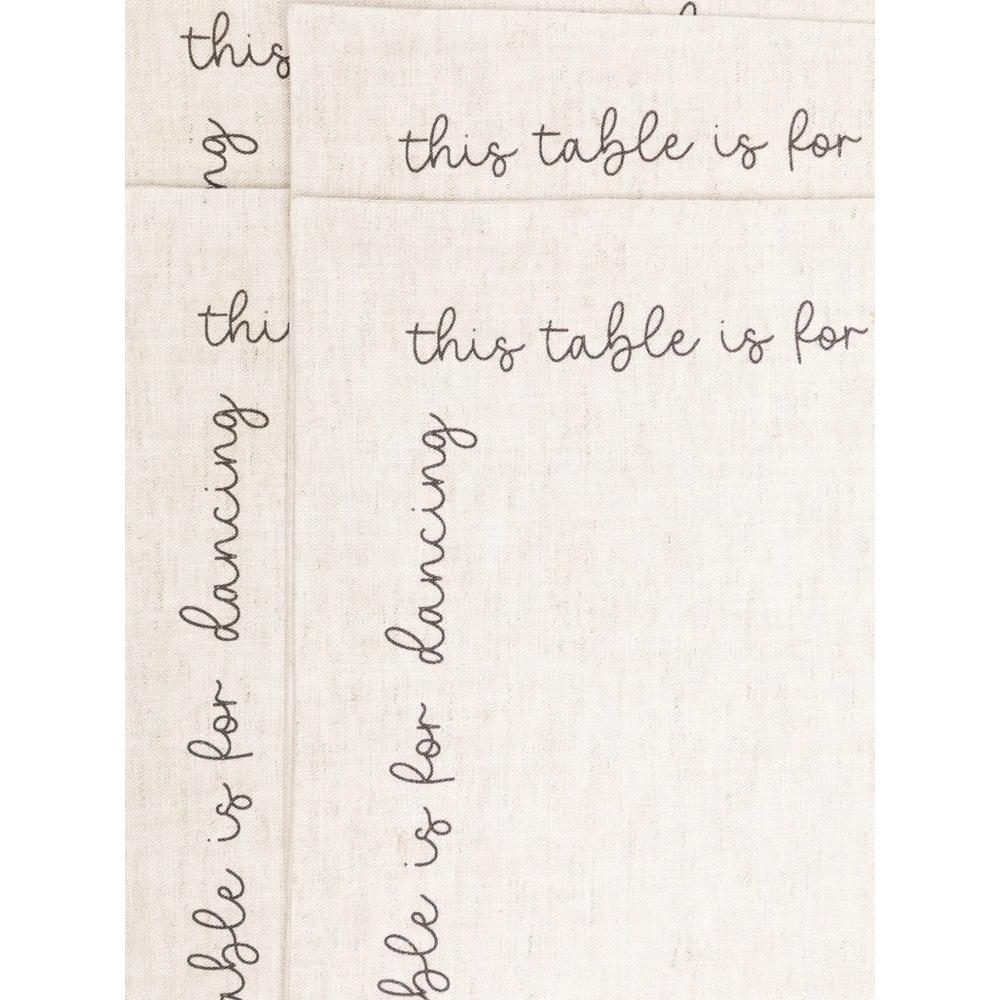 this
ng
this table is for
thi
this table is for
dancing
able is for dancing
ble is for